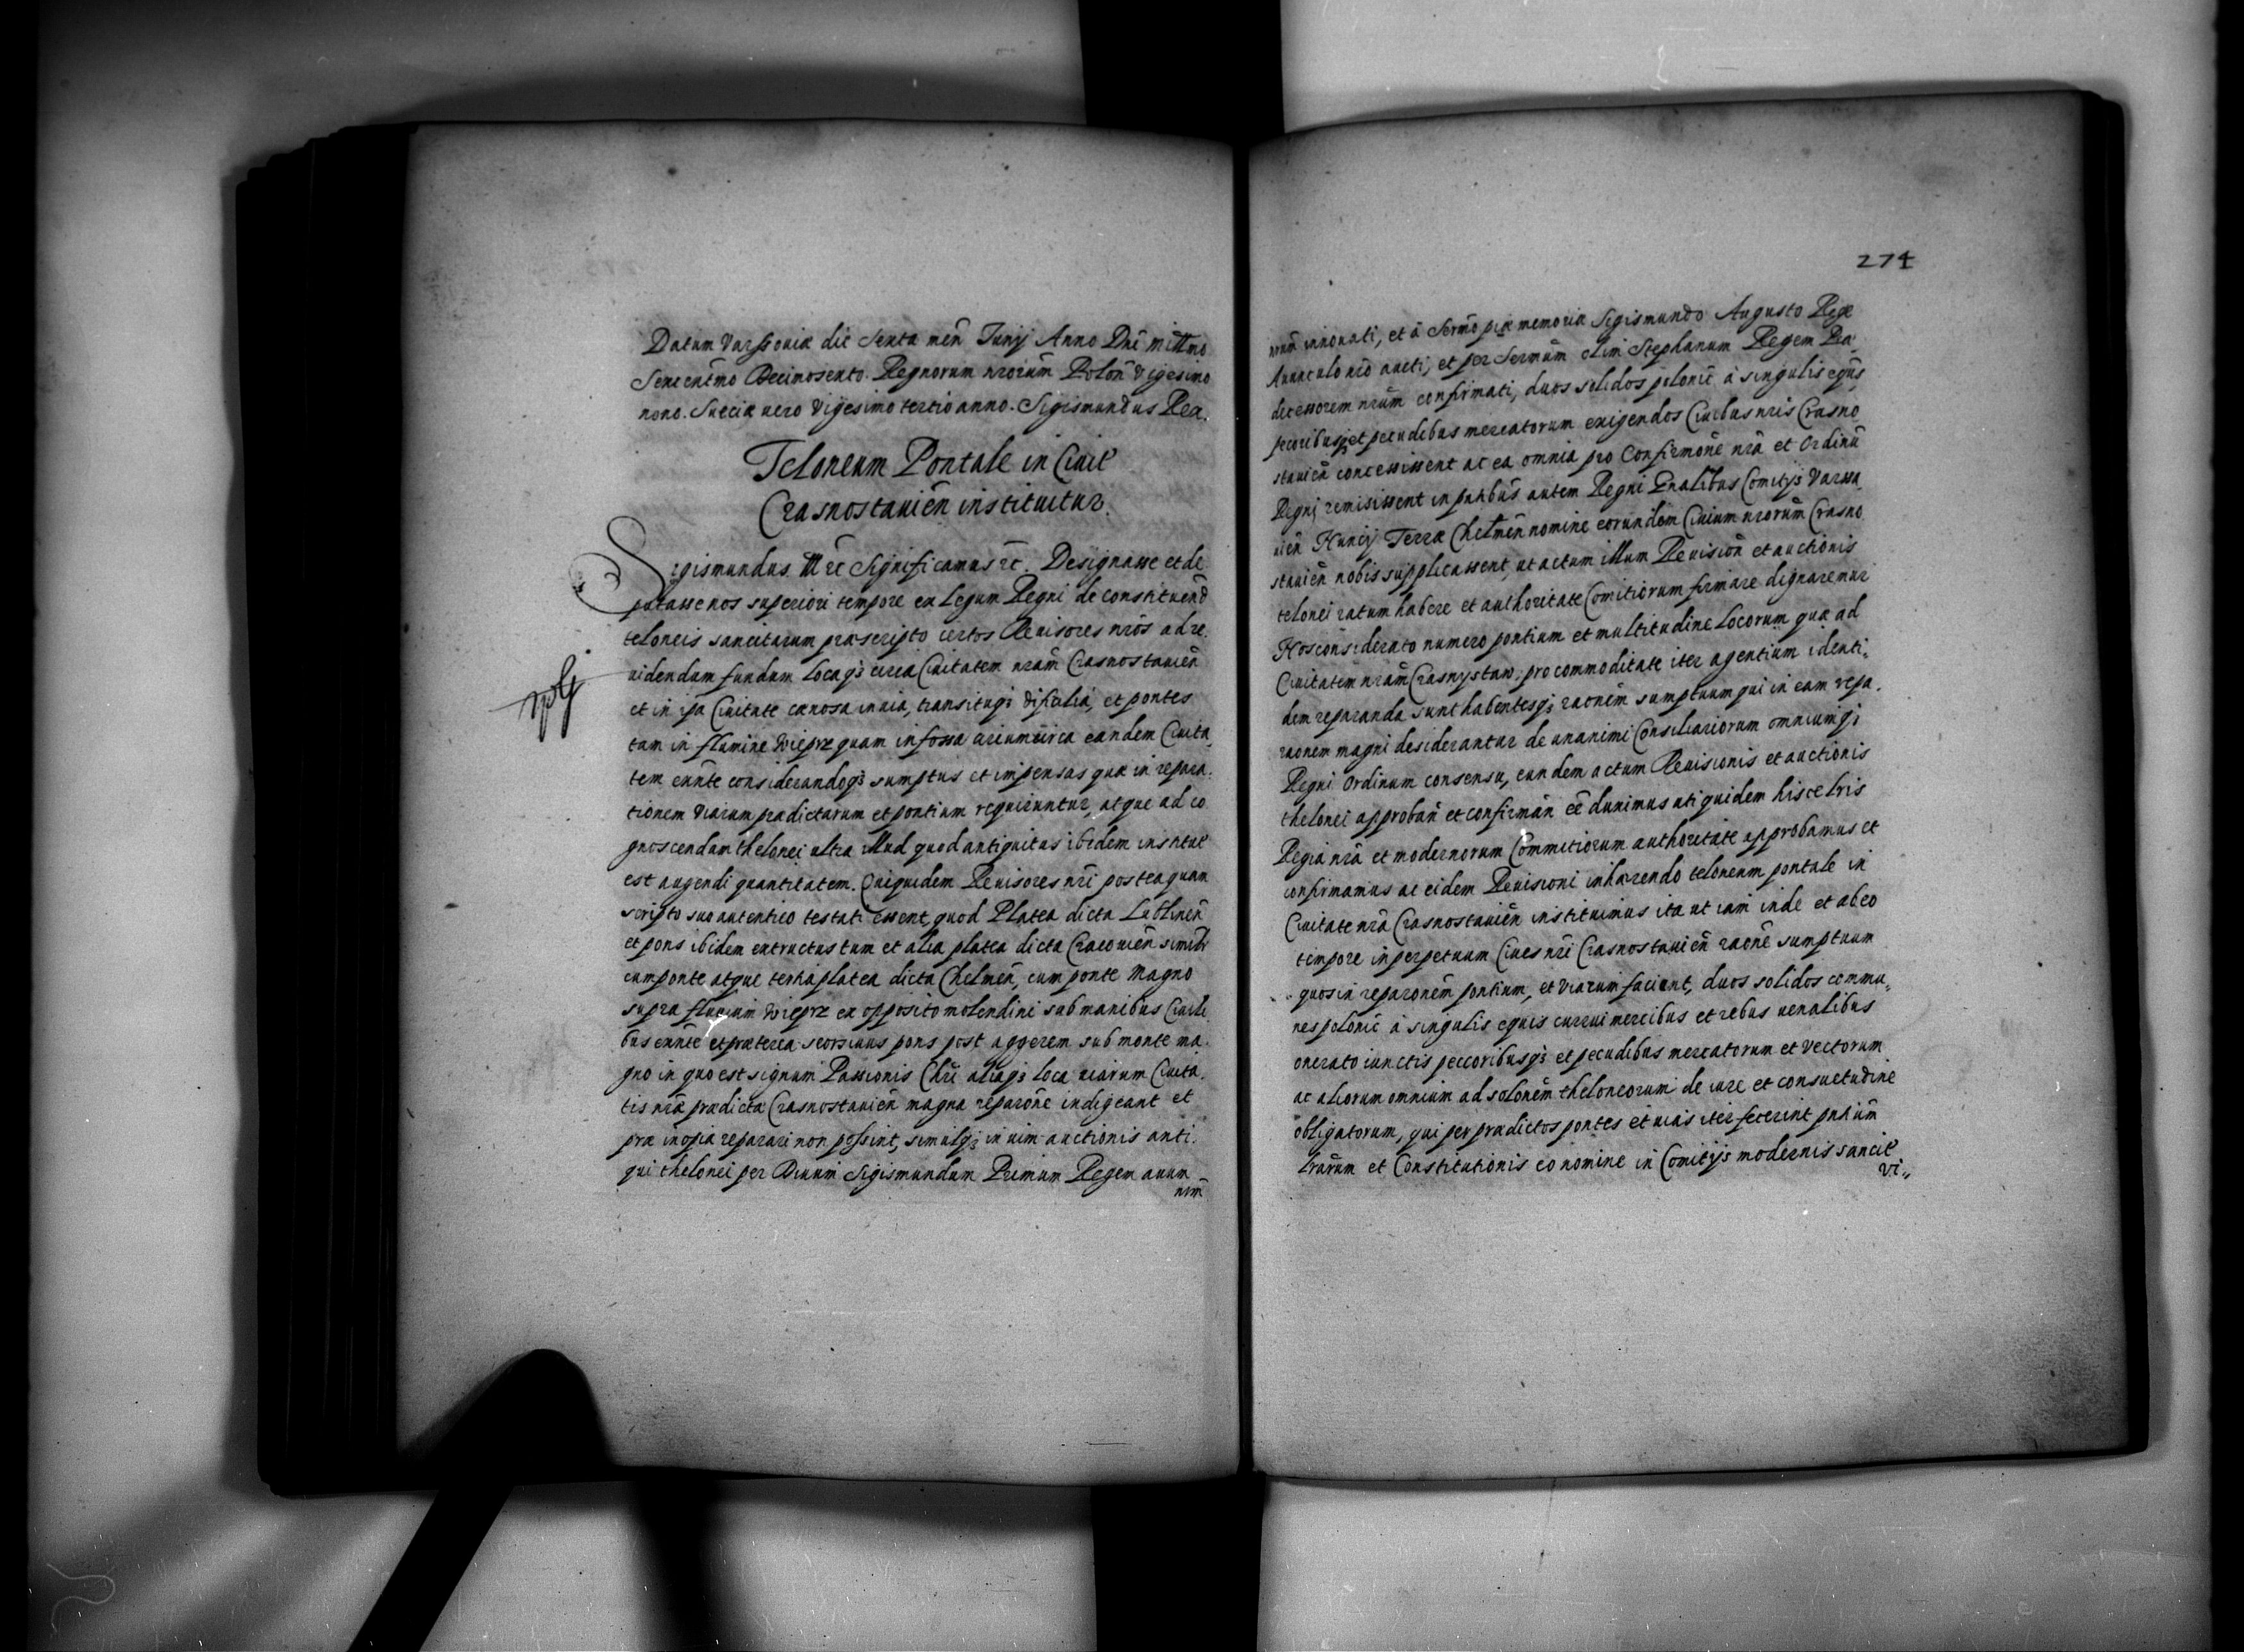 Datum Varssoviæ die Sexta men̄ Junij Anno Dn̄i Mill̄mo
Sexcent̄mo Decimosexto. Regnorum nr̄orum Polon̄ Vigesimo
nono. Sueciæ uero Vigesimo tertio anno. Sigismundus Rex.
Teloneum Pontale in Ciuit̄
Crasnostauien̄ instituitur.
Sigismundus III etc Significamus etc. Designasse et de
putasse nos superiori tempore ex Legum Regni de constituend̄
teloneis sancitarum præscripto certos Reuisores nr̄os ad re.
uidendum fundum Locaq3 circa Ciuitatem nr̄am Crasnostauien̄
et in ip̄a Ciuitate cænosa inuia, transituq3 dificilia, et pontes
tam in flumine Wieprz quam in fossa ciuium circa eandem Ciuita,
tem eun̄te considerandoq3 sumptus et impensas quæ in repara.
tionem viarum prædictarum et pontium requiruntur, atque ad co
gnoscendam thelonei ultra illud quod antiquitus ibidem institut̄
est augendi quantitatem. Quiquidem Reuisores nr̄i posteaquam
scripto suo autentico testati essent, quod Platea dicta Lublinen̄
et pons ibidem extructus tum et alia platea dicta Cracouien̄ simil̄r
cum ponte atque tertia platea dicta Chelmen̄, cum ponte Magno
supra fluuium Wieprz ex opposito molendini sub manibus Ciuili
bus eun̄te et præterea seorsiuus pons post aggerem sub monte ma.
gno in quo est signum Passionis Chr̄i aliaq3 loca uiarum Ciuita.
tis nr̄æ prædictæ Crasnostauien̄ magna reparōne indigeant et
præ inopia reparari non possint, simulq3 in uim auctionis anti.
qui thelonei per Diuum Sigismundum Primum Regem auum
nr̄m
274
nr̄um innouati, et à Serm̄o piæ memoriæ Sigismundo Augusto Rege
Auunculo nr̄o aucti, et per Sermūm olim Stephanum Regem Præ
decessorem nr̄um confirmati, duos solidos polonic̄ à singulis equis
pecoribusq3 et pecudibus mercatorum exigendos Ciuibus nr̄is Crasno
stauien̄ concessissent ac ea omnia pro Confirmōne nr̄a et Ordinū
Regni remisissent in pn̄tibus autem Regni Gn̄alibus Comitijs Varssa,
uien̄ Huncij Terræ Chelmen̄ nomine eorundem Ciuium nr̄orum Crasno
stauien̄ nobis supplicassent, ut actum illum Reuision̄ et auctionis
telonei ratum habere et authoritate Comitiorum firmare dignaremur
Hos considerato numero pontium et multitudine Locorum quæ ad
Ciuitatem nr̄am Crasnystaw, pro commoditate iter agentium identi,
dem reparanda sunt habentesq3 raōnem sumptuum qui in eam repa.
raōnem magni desiderantur de unanimi Consiliariorum omniumq3
Regni Ordinum consensu, eundem actum Reuisionis et auctionis
thelonei approban̄ et confirman̄ eē duximus uti quidem hisce lr̄is
Regia nr̄a et modernorum Commitiorum authoritate approbamus et
confirmamus ac eidem Reuisioni inhærendo teloneum pontale in
Ciuitate nr̄a Crasnostauien̄ instituimus ita ut iam inde et ab eo
tempore in perpetuum Ciues nr̄i Crasnostauien̄ raōne sumptuum
quos in reparōnem pontium, et viarum faciunt, duos solidos commu,
nes polonic̄ à singulis equis currui mercibus et rebus uenalibus
onerato iunctis peccoribusq3 et pecudibus mercatorum et vectorum
ac aliorum omnium ad solōnem theloneorum de iure et consuetudine
obligatorum, qui per prædictos pontes et uias iter fecerint pn̄tiūm
lr̄arum et Constitutionis eo nomine in Comitijs modernis sancit̄
vi,,